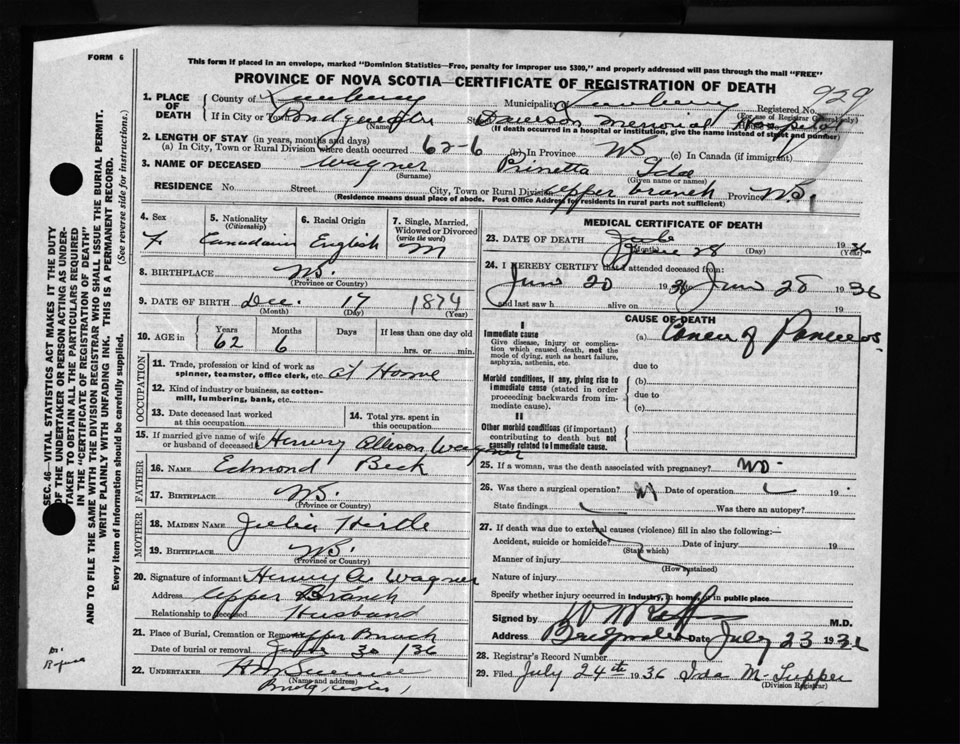 FORM 6
This form if placed in an envelope, marked "Dominion Statistics—Free, penalty for improper use $300," and properly addressed will pass through the mail "FREE"
PROVINCE OF NOVA SCOTIA—CERTIFICATE OF REGISTRATION OF DEATH
929
1. PLACE OF DEATH
County of Lunenburg Municipality Lunenburg Registered No.
(For use of Registrar General only)
If in City or Town Bridgewater (Name) Dawson Memorial Hospital
(If death occurred in a hospital or institution, give the name instead of street and number)
2. LENGTH OF STAY (in years, months and days)
(a) In City, Town or Rural Division where death occurred 62-6 (b) In Province NS (c) In Canada (if immigrant)
3. NAME OF DECEASED Wagner Prinetta Ida
(Surname) (Given name or names)
RESIDENCE No. Street City, Town or Rural Division Upper Branch Province NS
(Residence means usual place of abode. Post Office Address for residents in rural parts not sufficient)
4. Sex F
5. Nationality (Citizenship) Canadian
6. Racial Origin English
7. Single, Married, Widowed or Divorced (write the word) M
8. BIRTHPLACE NS.
(Province or Country)
9. DATE OF BIRTH Dec. 17 1874
(Month) (Day) (Year)
10. AGE in Years 62 Months 6 Days If less than one day old hrs. or min.
OCCUPATION
11. Trade, profession or kind of work as spinner, teamster, office clerk, etc. at Home
12. Kind of industry or business, as cotton-mill, lumbering, bank, etc.
13. Date deceased last worked at this occupation
14. Total yrs. spent in this occupation
15. If married give name of wife or husband of deceased Henry Allison Wagner
FATHER
16. NAME Edmond Beck
17. BIRTHPLACE NS.
MOTHER
18. MAIDEN NAME Julia Hirtle
19. BIRTHPLACE NS.
(Province or Country)
20. Signature of informant Henry A. Wagner
Address Upper Branch
Relationship to deceased Husband
21. Place of Burial, Cremation or Removal Upper Branch
Date of burial or removal 30 /36
22. UNDERTAKER
(Name and address)
Bridgewater
MEDICAL CERTIFICATE OF DEATH
23. DATE OF DEATH June 28 1936
(Month) (Day) (Year)
24. I HEREBY CERTIFY that I attended deceased from:
June 20 1936 June 28 1936
and last saw h alive on 19
CAUSE OF DEATH
I
Immediate cause
Give disease, injury or complication which caused death, not the mode of dying, such as heart failure, asphyxia, asthenia, etc.
(a) Cancer of Pancreas
due to
Morbid conditions, if any, giving rise to immediate cause (stated in order proceeding backwards from immediate cause).
(b)
due to
(c)
II
Other morbid conditions (if important) contributing to death but not causally related to immediate cause.
25. If a woman, was the death associated with pregnancy? NO.
26. Was there a surgical operation? Date of operation 19
State findings Was there an autopsy?
27. If death was due to external causes (violence) fill in also the following:—
Accident, suicide or homicide? Date of injury 19
(State which)
Manner of injury
(How sustained)
Nature of injury
Specify whether injury occurred in industry, in home, or in public place
Signed by M.D.
Address Bridgewater Date July 23 1936
28. Registrar's Record Number
29. Filed July 24th 1936 Ida M. Tupper
(Division Registrar)
SEC. 46—VITAL STATISTICS ACT MAKES IT THE DUTY
OF THE UNDERTAKER OR PERSON ACTING AS UNDER-
TAKER TO OBTAIN ALL THE PARTICULARS REQUIRED
IN THE "CERTIFICATE OF REGISTRATION OF DEATH"
AND TO FILE THE SAME WITH THE DIVISION REGISTRAR WHO SHALL ISSUE THE BURIAL PERMIT.
WRITE PLAINLY WITH UNFADING INK. THIS IS A PERMANENT RECORD.
Every item of information should be carefully supplied.
(See reverse side for instructions.)